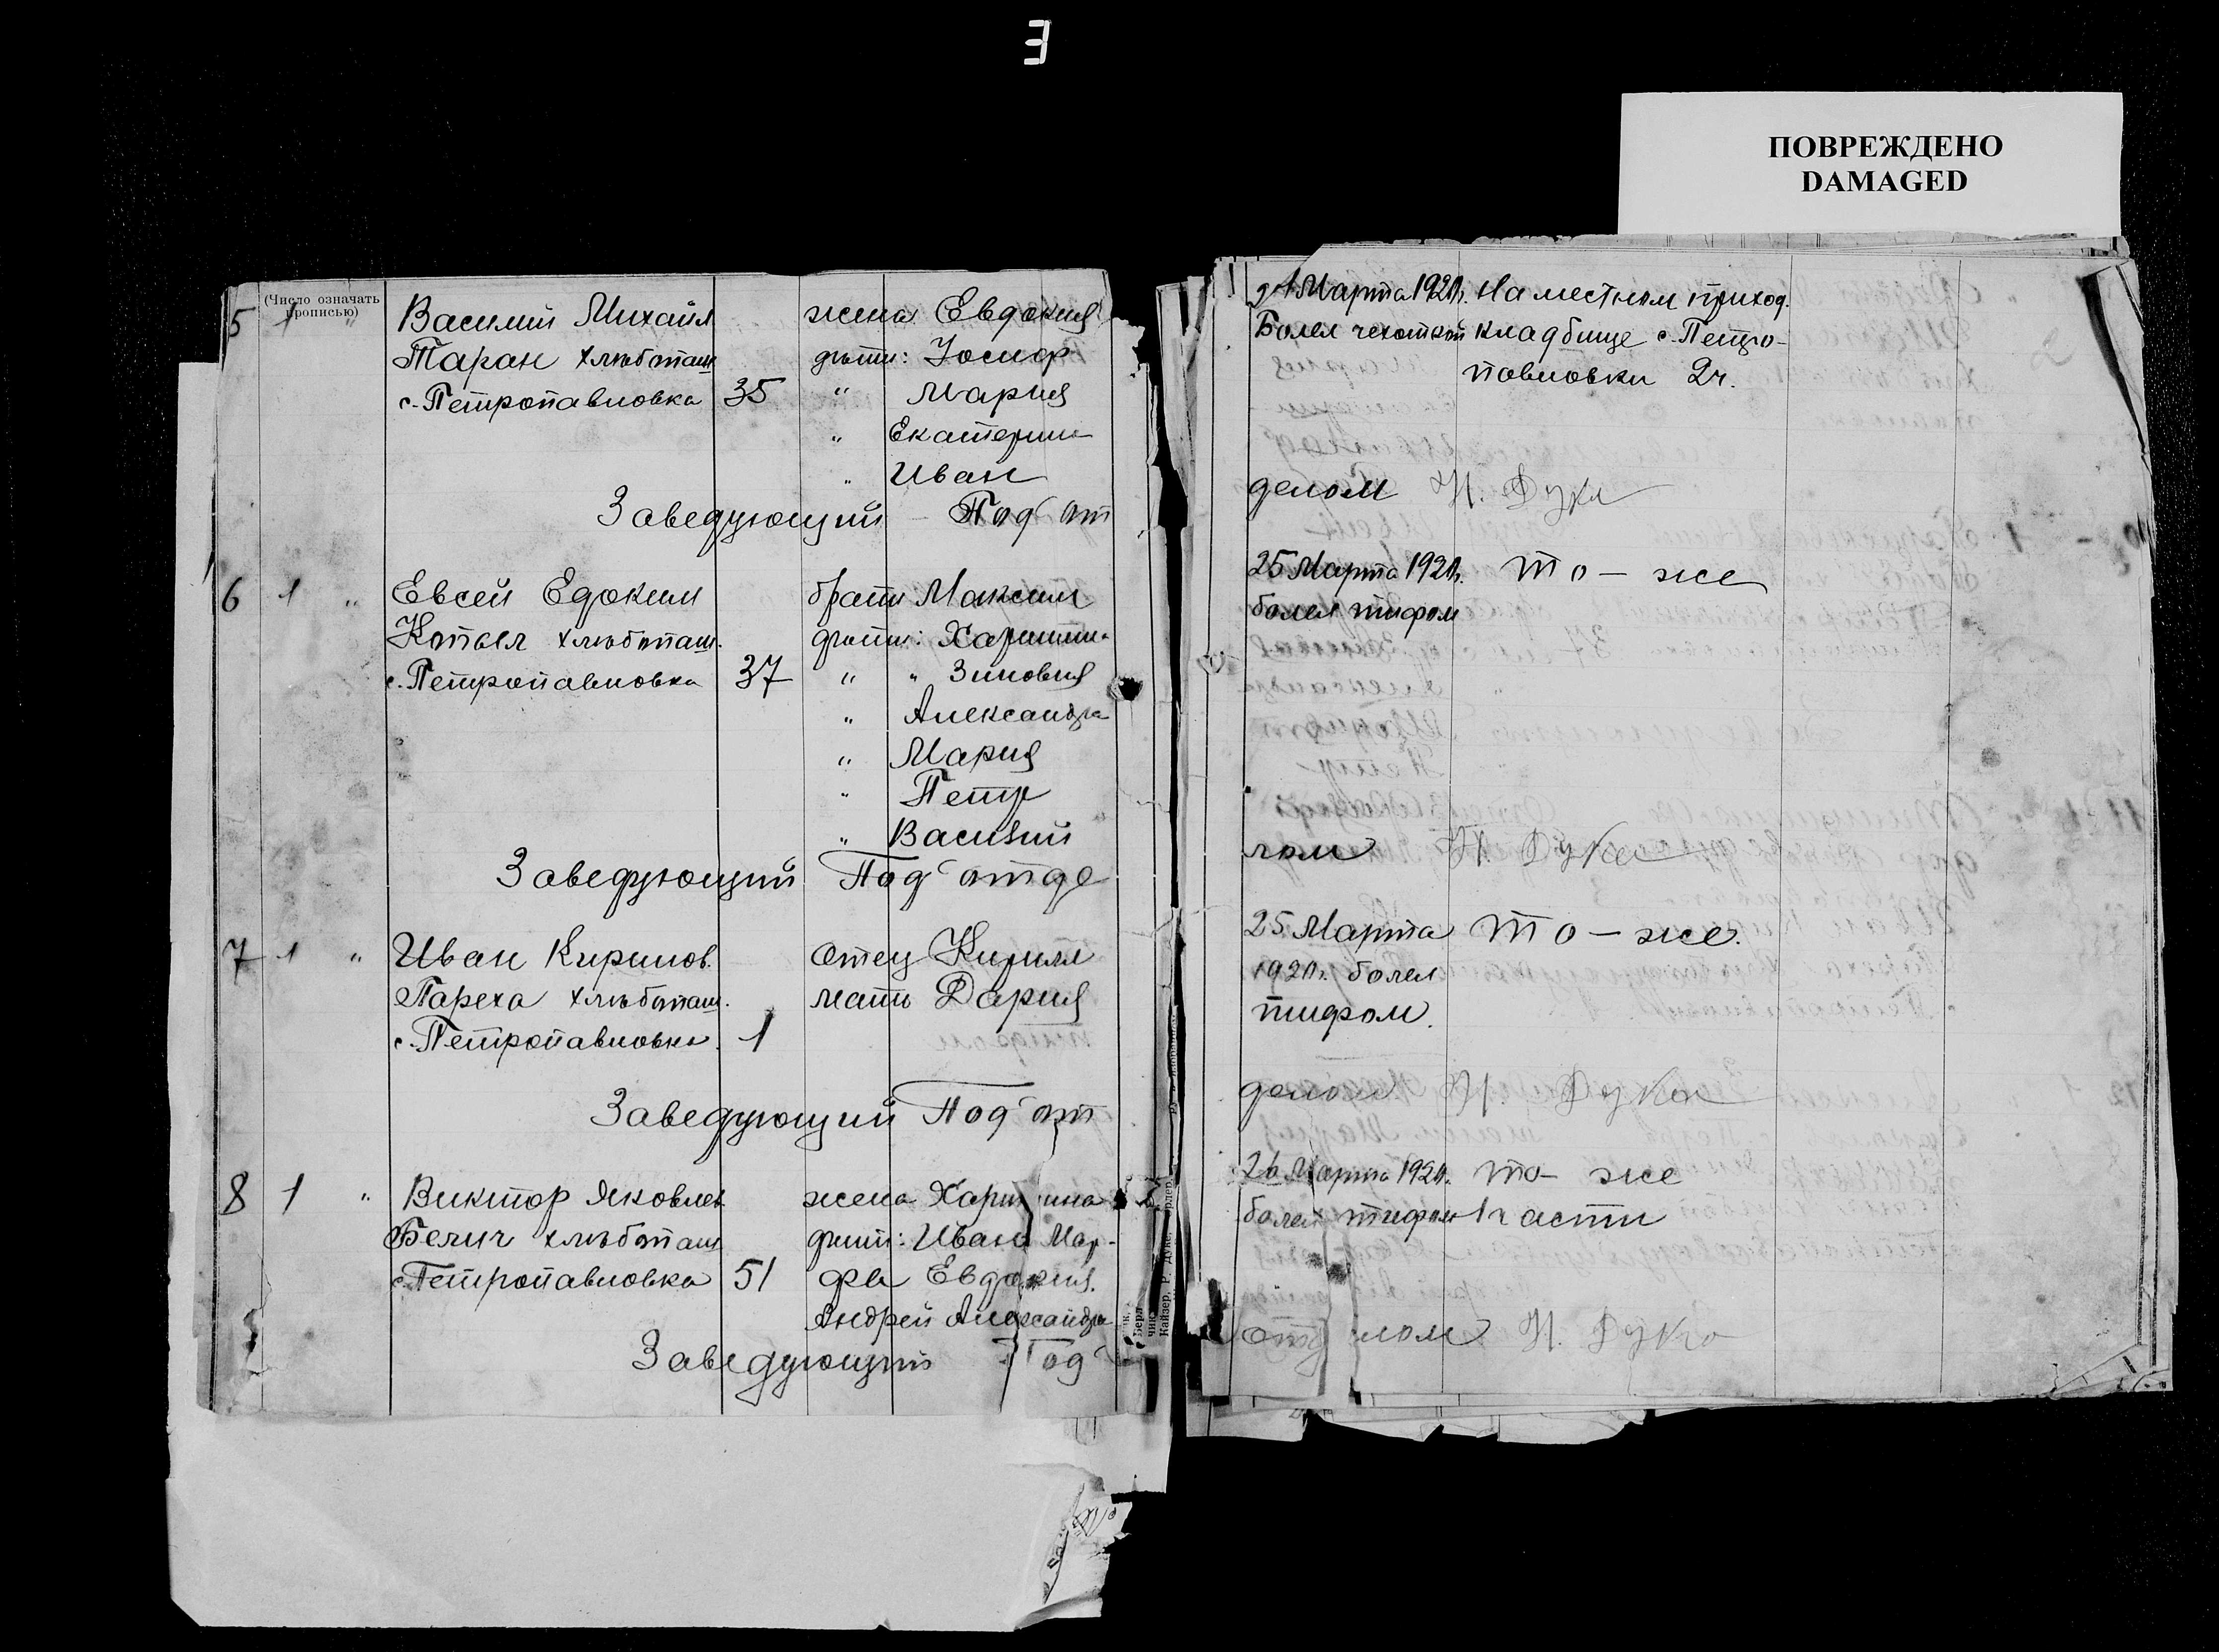 ПОВРЕЖДЕНО
DAMAGED
(Число означать
прописью)
5 1 " Василий Михайл жена Евдокия
Таран хлѣбопаш дѣти: Іосиф
с. Петропавловка 35 " Мария
" Екатерина
" Иван
Заведующий Под'от
6 1 " Евсей Едоким брат Максим
Копыл хлѣбопаш. дѣти: Харитина
с. Петропавловка 37 " " Зиновия
" Александра
" Мария
" Петр
" Василий
Заведующий Под'отде
7 1 " Иван Кирилов. отец Кирилл
Пареха хлѣбопаш. мать Дария
с. Петропавловка 1
Заведующий Под'от
8 1 " Виктор Яковлев жена Харитина
Белич хлѣбопаш дѣти: Иван Мар-
с. Петропавловка 51 фа Евдокия.
Андрей Александра
Заведующий Под'
Марта 1920г. На местном приход.
Болел чехоткой кладбище с. Петро-
павловки 2ч.
делом Н. Дука
25 Марта 1920г. то - же
болел тифом
лом Н. Дука
25 Марта то - же.
1920г. болел
тифом.
делом Н. Дука
26 Марта 1920г. то - же
болел тифом 1 части
отд лом Н. Дука
Кайзер, Р. Дуке,